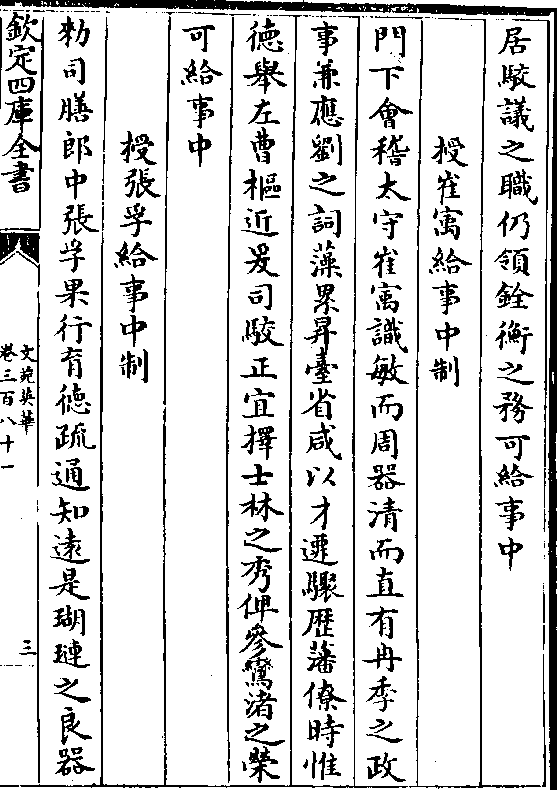 居駮議之職仍領銓衡之務可給事中
授崔寓給事中制
門下㑹稽太守崔寓識敏而周器清而直有冉季之政
事兼應劉之詞藻累昇臺省咸以才遷驟歴藩條時惟
徳舉左曹樞近爰司駮正宜擇士林之秀俾參鸞渚之榮
可給事中
授張孚給事中制
勅司膳郎中張孚果行育徳疏通知逺是瑚璉之良器
欽定四庫全書
文苑英華
卷三百八十一
三